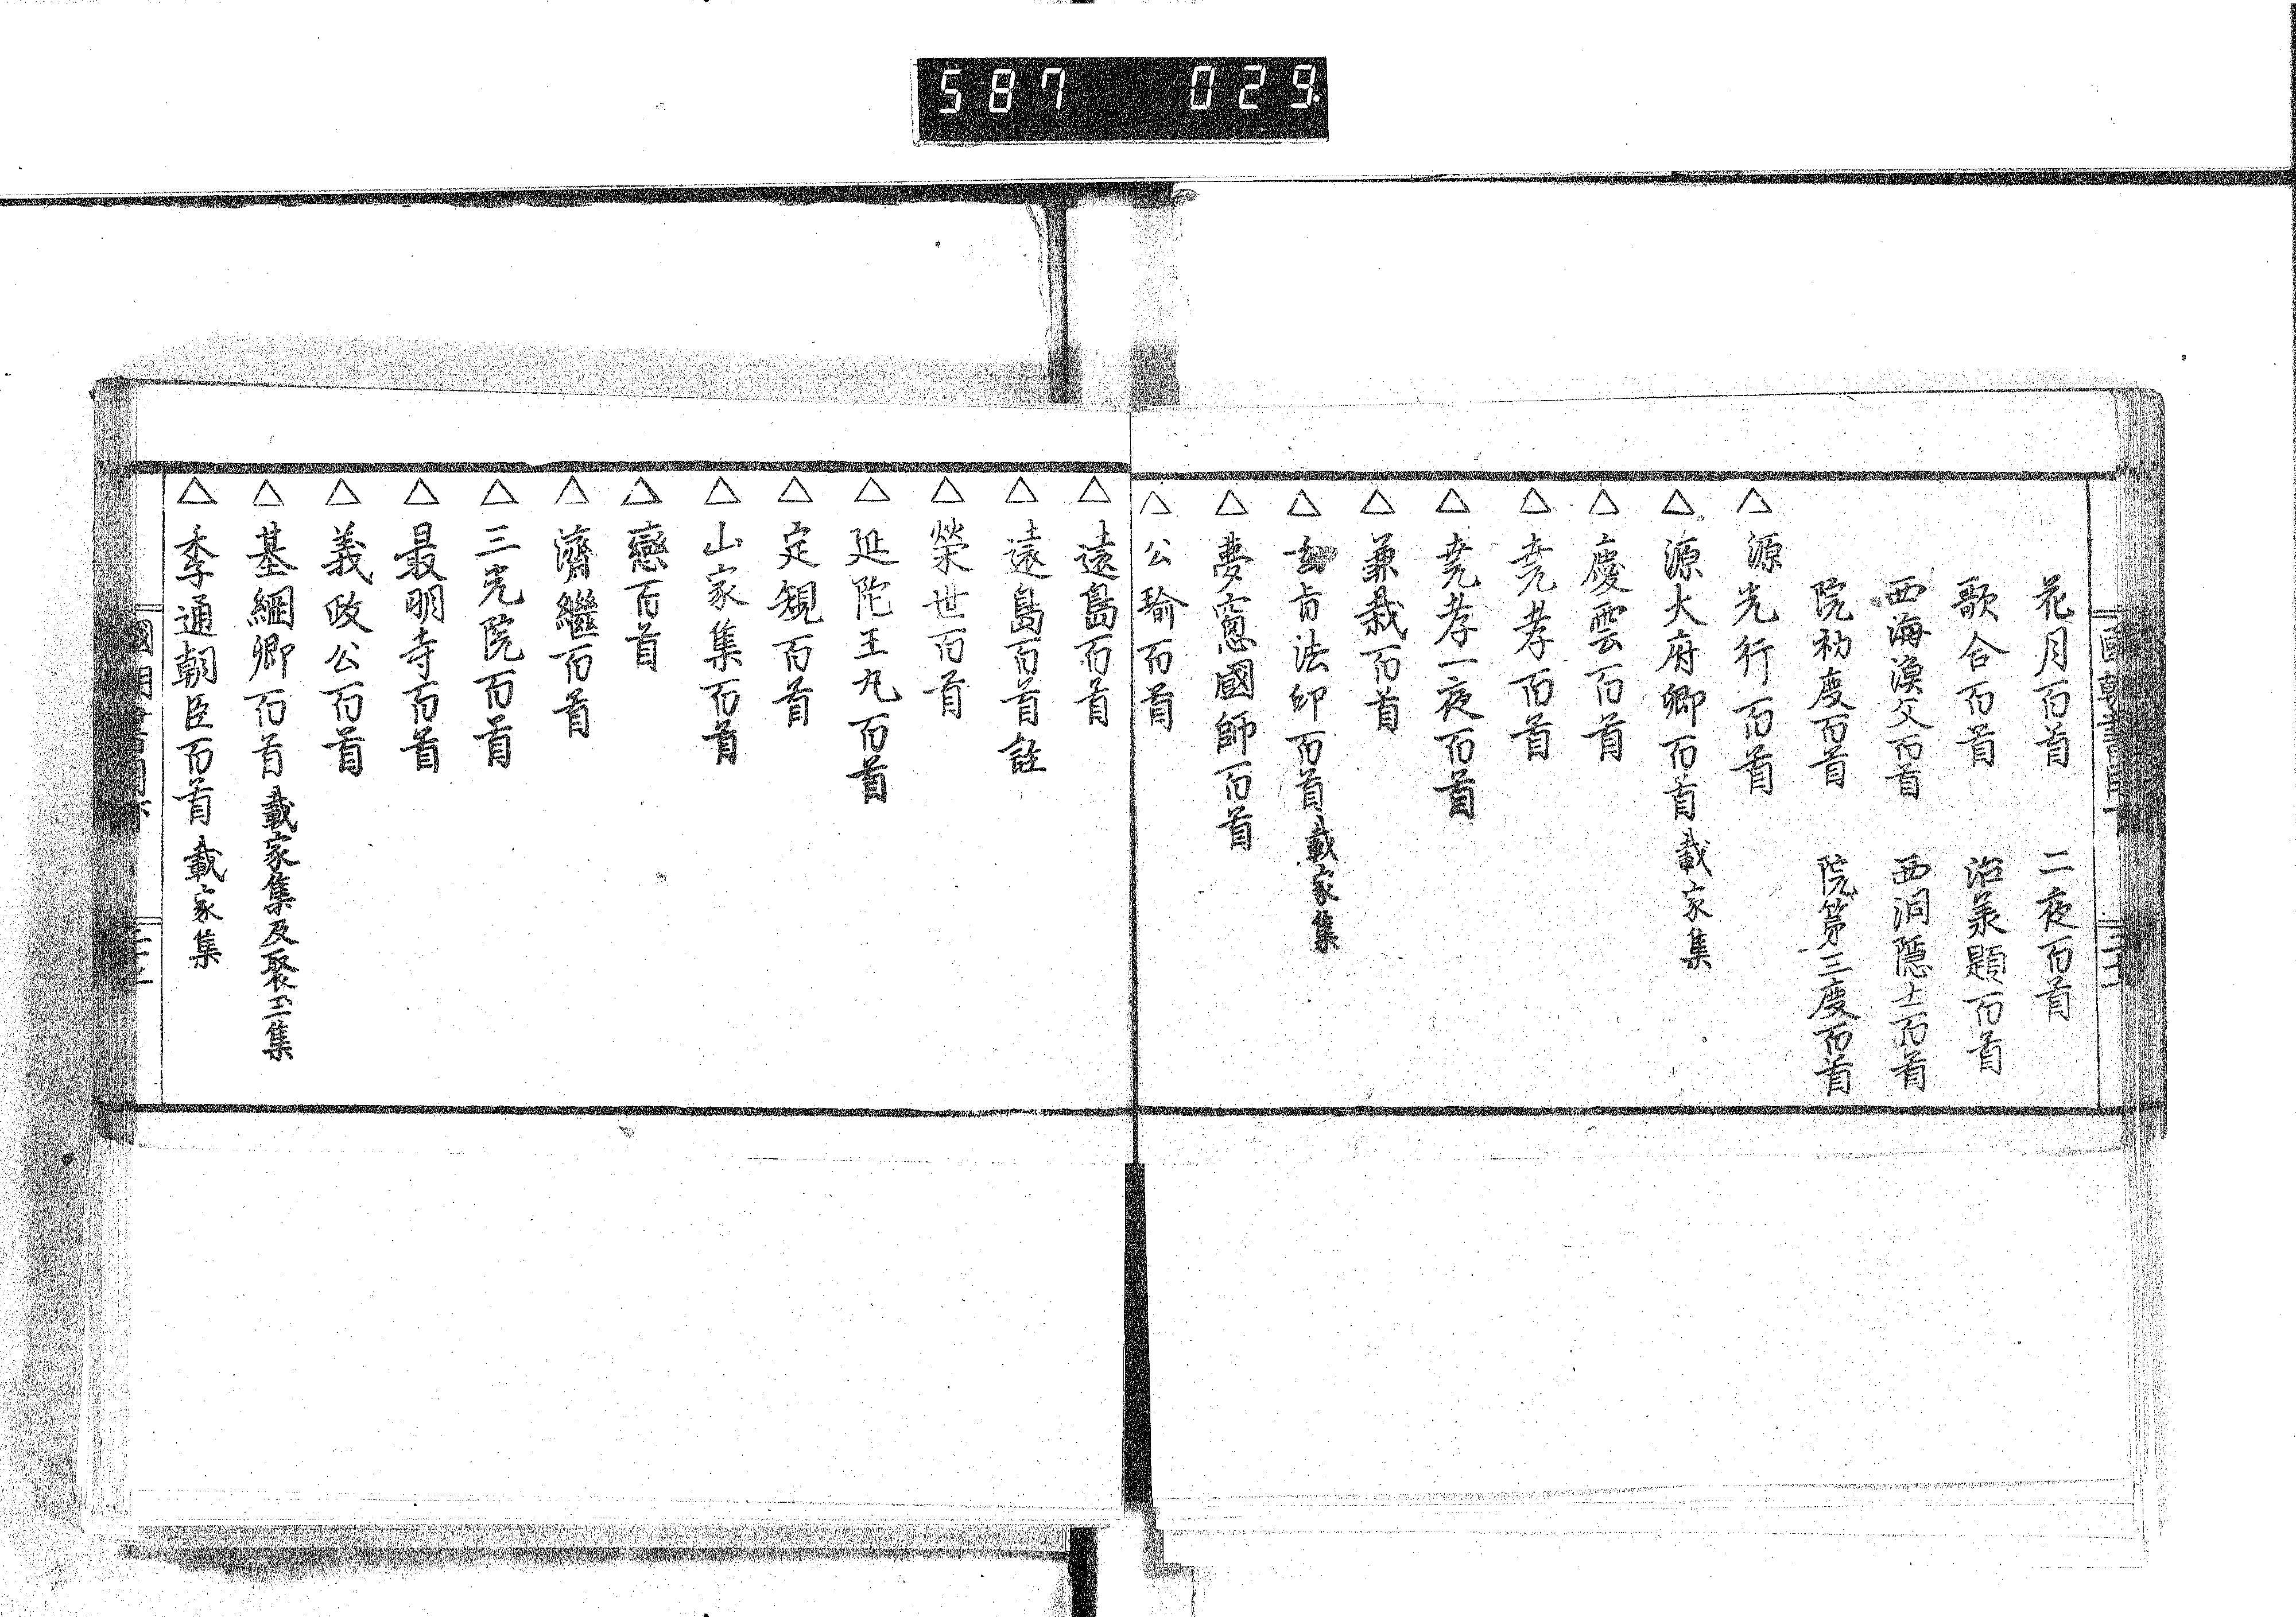 587 029
花月百首 二夜百首
歌合百首 治承題百首
西海漁父百首 西洞隠士百首
院初度百首 院第三度百首
△ 源光行百首
△ 源大府卿百首 載家集
△ 慶雲百首
△ 尭孝百首
△ 尭孝一夜百首
△ 兼栽百首
△ 玄旨法印百首 載家集
△ 夢窓國師百首
△ 公瑜百首
△ 遠島百首
△ 遠島百首註
△ 榮世百首
△ 延陀王丸百首
△ 定親百首
△ 山家集百首
△ 戀百首
△ 濟繼百首
△ 三光院百首
△ 最明寺百首
△ 義政公百首
△ 基綱卿百首 載家集及聚玉集
△ 季通朝臣百首 載家集